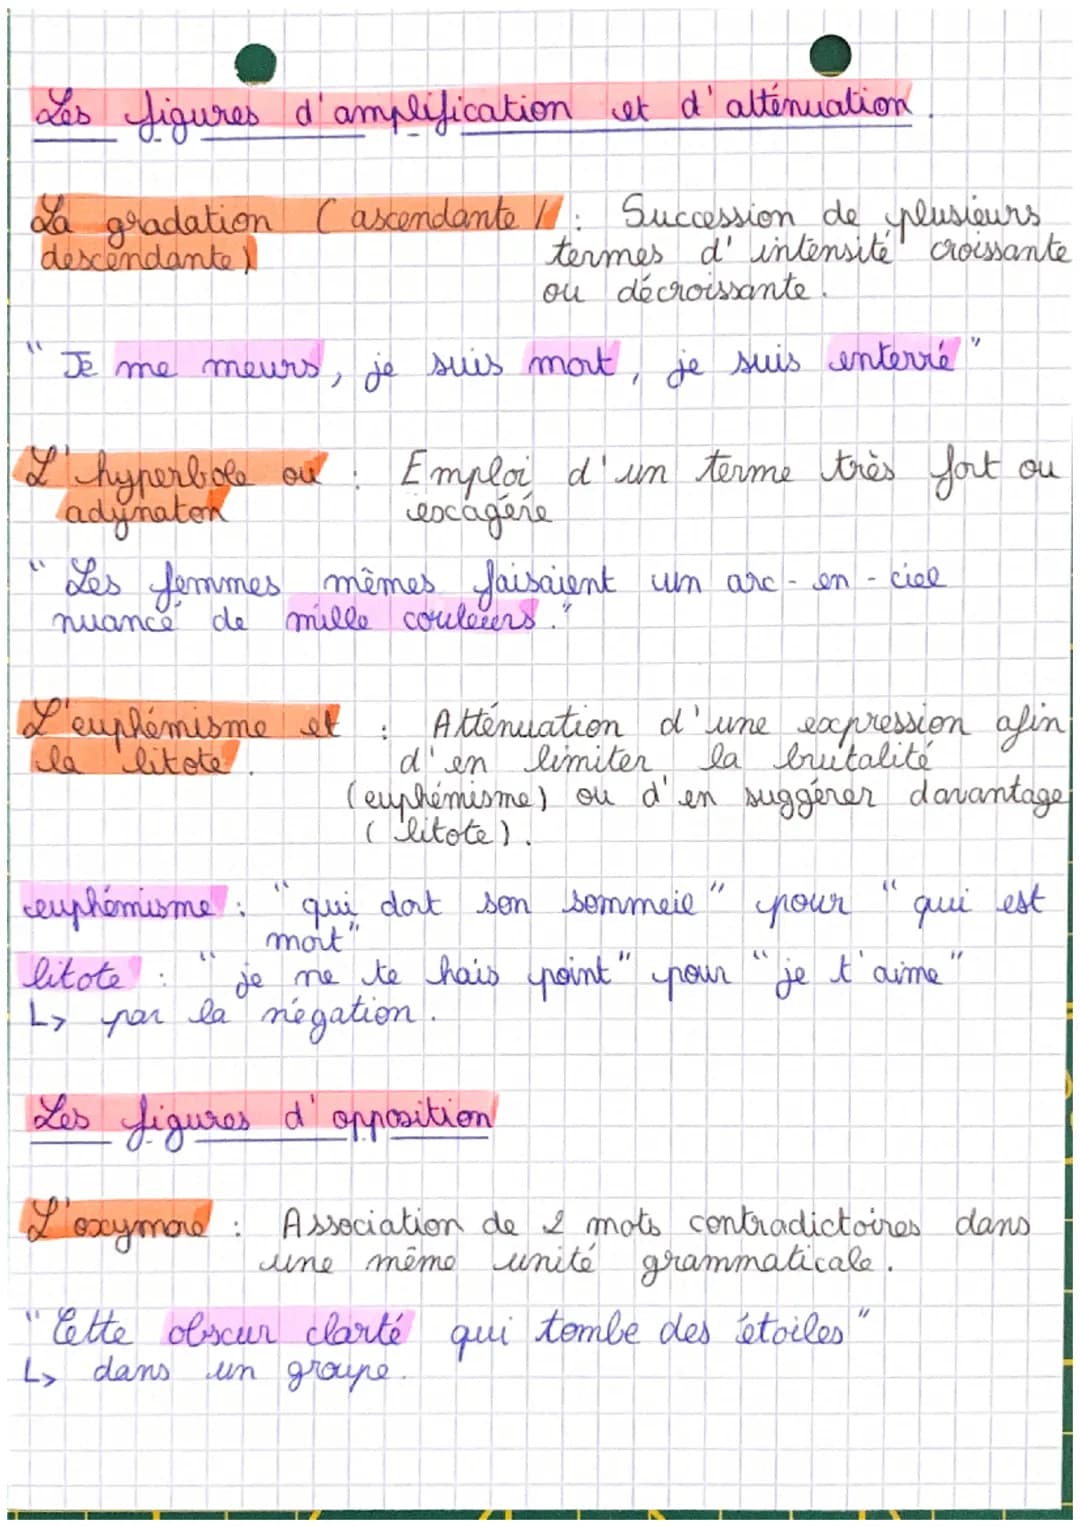 Les figures d'amplification et d'atténuation.
La gradation (ascendante / : Succession de plusieurs
descendante) termes d'intensité croissante
ou décroissante.
" Je me meurs, je suis mort, je suis enterré "
L'hyperbole ou : Emploi d'un terme très fort ou
adynaton excagéré
" Les femmes mêmes faisaient un arc-en-ciel
nuancé de mille couleurs."
L'euphémisme et : Atténuation d'une expression afin
la litote. d'en limiter la brutalité
(euphémisme) ou d'en suggérer davantage
(litote).
euphémisme : "qui dort son sommeie" pour "qui est
mort"
litote : "je ne te hais point" pour "je t'aime"
↳ par la négation.
Les figures d'opposition
L'oxymore : Association de 2 mots contradictoires dans
une même unité grammaticale.
"Cette obscur clarté qui tombe des étoiles"
↳ dans un groupe.